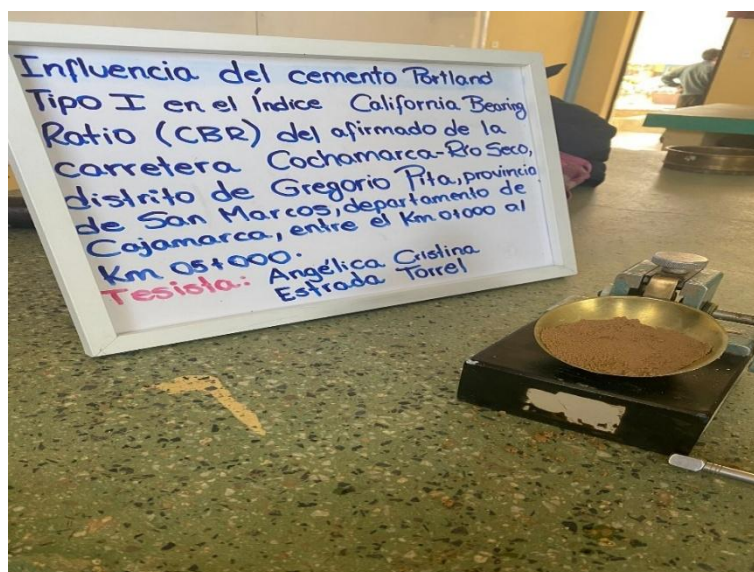 Influencia del cemento Portland
Tipo I en el Índice California Bearing
Ratio (CBR) del afirmado de la
carretera Cochamarca-Río Seco,
distrito de Gregorio Pita, provincia
de San Marcos, departamento de
Cajamarca, entre el Km 0+000 al
Km 05+000.
Tesista: Angélica Cristina
Estrada Torrel